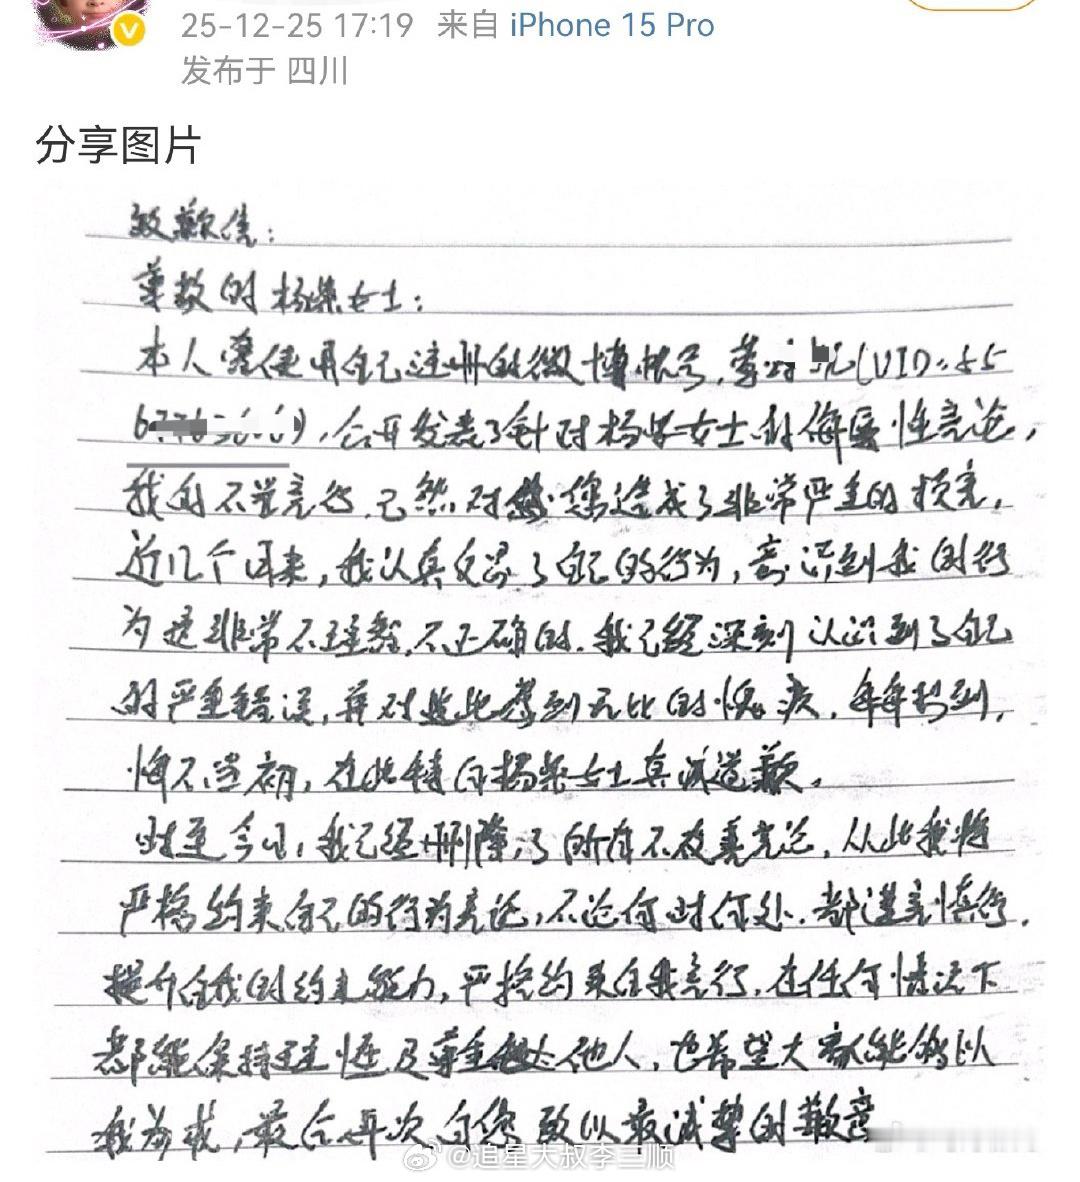 25-12-25 17:19 来自 iPhone 15 Pro
发布于 四川
分享图片
致歉信:
尊敬的杨紫女士:
本人曾使用自己注册的微博帐号,(UID:55
6),公开发表了针对杨紫女士的侮辱性言论,
我的不当言行,已然对您造成了非常严重的损害,
近几个月来,我认真反思了自己的行为,意识到我的行
为是非常不理智,不正确的.我已经深刻认识到了自己
的严重错误,并对此感到无比的愧疚,
悔不当初,在此特向杨紫女士真诚道歉。
时至今日,我已经删除了所有不友善言论,从此我将
严格约束自己的行为言论,不论何时何处,都谨言慎行.
提升自我的约束能力,严格约束自我言行,在任何情况下
都能保持理性及尊重他人,也希望大家能够以
我为戒,最后再次向您致以最诚挚的歉意
@追星大叔李三顺